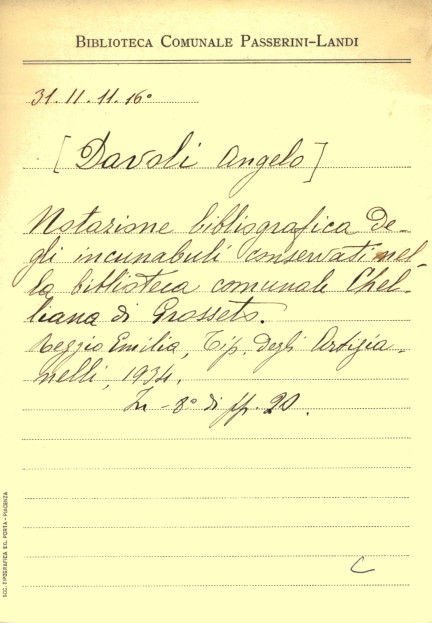 BIBLIOTECA COMUNALE PASSERINI-LANDI
31. II. 11. 16°
[Davoli Angelo]
Notazione bibliografica de-
gli incunabuli conservati nel-
la biblioteca comunale Chel-
liana di Grosseto.
Reggio Emilia, Tip. degli Artigia-
nelli, 1934.
In-8° di pp. 20.
C
SOC. TIPOGRAFICA ED. PORTA - PIACENZA